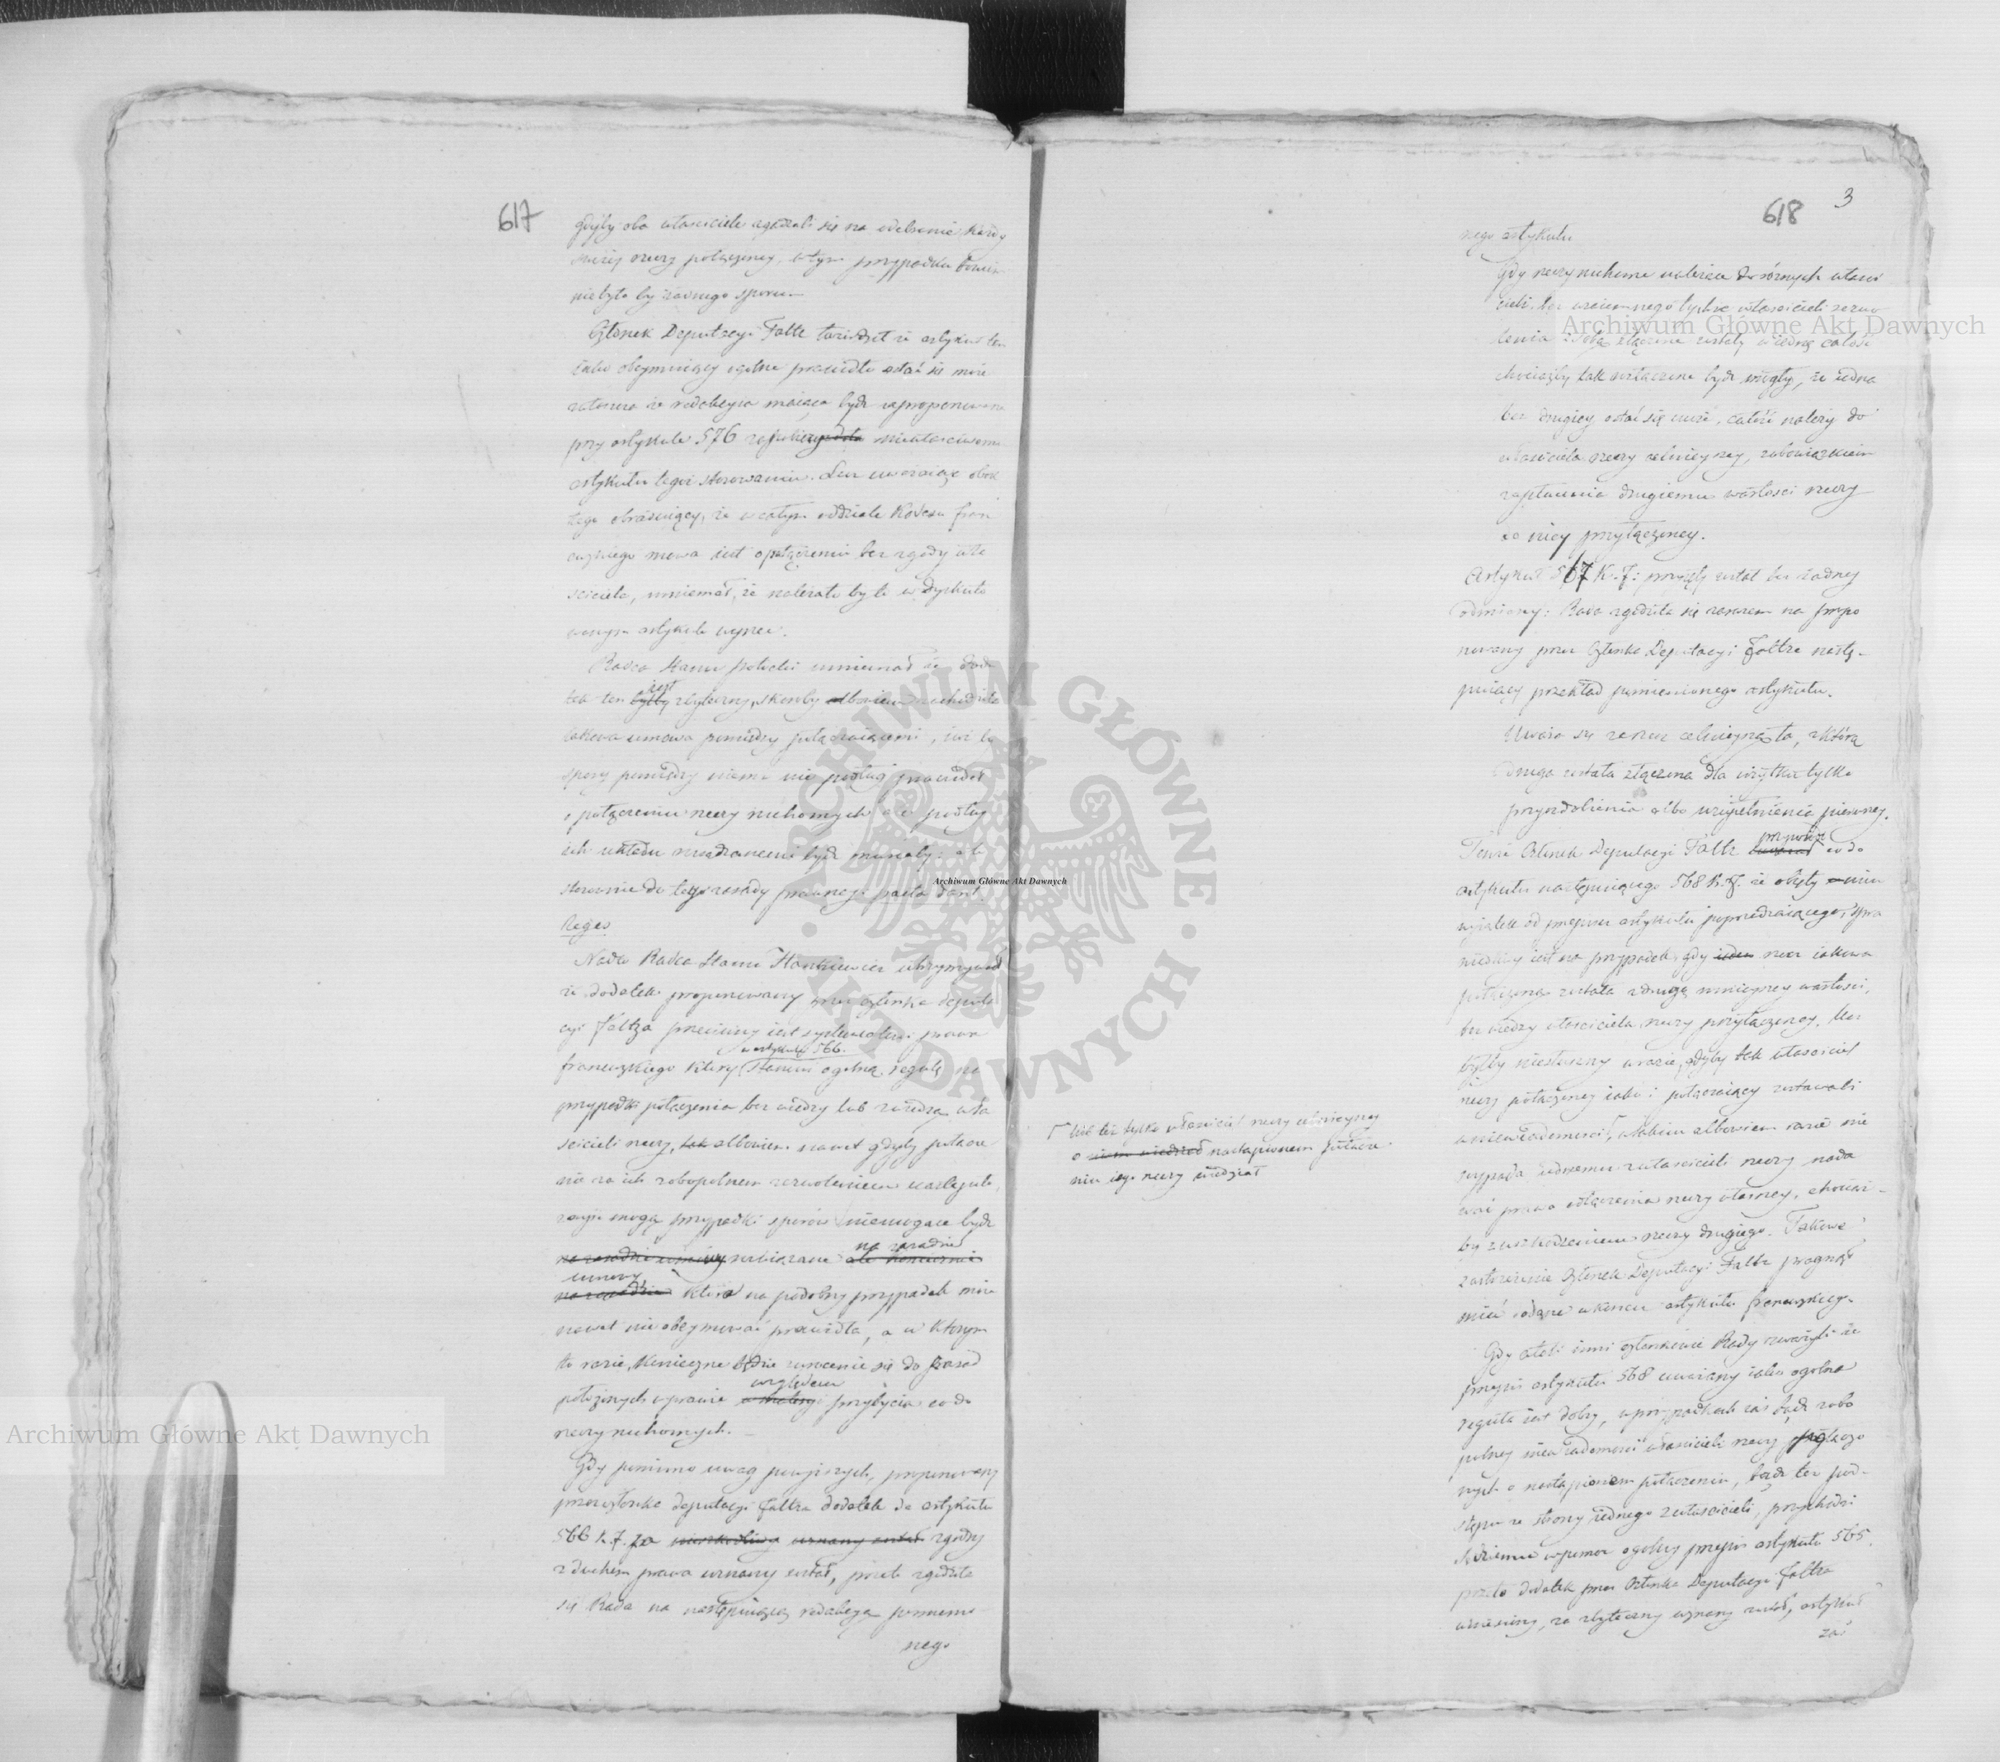 617
gdyby oba właściciele zgadzali się na oddzielenie każdy
swoiey rzeczy połączoney, w tym przypadku bowiem
niebyło by żadnego sporu
Członek Deputacyi Faltz twierdził że artykuł ten
iako obeymuiący ogólne prawidło ostać się może
zwłaszcza że redakcya maiąca bydź zaproponowana
przy artykule 576 zapobieży niewłaściwemu
artykułu tegoż stosowaniu. Lecz uważaiąc obok
tego obrońcuiący, że w całym oddziale Kodexu fran
cuzkiego mowa iest o połączeniu bez zgody wła
ściciela, mniemał, że należało by to w dyskuto
wanym artykule wyrzec.
Radca Stanu Potocki mniemał że doda
tek ten byłby iest zbyteczny, skoroby albowiem zachodziła
takowa umowa pomiędzy połączaiącemi, iuż to
spory pomiędzy niemi nie podług prawideł
o połączeniu rzeczy ruchomych ale podług
ich układu rozsądzanemi bydź musiały: a to
stosownie do tey zasady prawney: pacta dant
leges
Nadto Radca Stanu Stankiewicz utrzymywał
że dodatek proponowany przez Członka deputa
cyi Faltza przeciwny iest systematowi prawa
francuzkiego który w artykule 566. stanowi ogólną regułę na
przypadki połączenia bez wiedzy lub z wiedzą wła
ścicieli rzeczy, tak albowiem nawet gdyby połącze
nie za ich dobopolnem zezwoleniem nastąpiło,
zayść mogą przypadki sporów niemogące bydź
na zasadzie umowy rozwiązane ale koniecznie na zasadzie
na zasadzie umowy która na podobny przypadek może
nawet nie obeymować prawidła, a w którym
to razie, konieczne będzie zwrócenie się do zasad
położonych w prawie o materyi względem przybycia co do
rzeczy ruchomych.
Gdy pomimo uwag powyższych, proponowany
przez członka deputacyi Faltza dodatek do artykułu
566 K. F. za zgodny
z duchem prawa uznany został, przeto zgodziła
się Rada na następuiącą redakcyą pomienio
nego
618
3
nego artykułu
Gdy rzeczy ruchome należące do różnych właści
cieli, bez wzaiemnego tychże właścicieli zezwo
lenia z sobą złączone zostały w iedną całość
chociażby tak rozłączone bydź mogły, że iedna
bez drugiey ostać się może, całość należy do
właściciela rzeczy celnieyszey, z obowiązkiem
zapłacenia drugiemu wartości rzeczy
do niey przyłączoney.
Artykuł 567 K. F: przyięty został bez żadney
odmiany: Rada zgodziła się zarazem na propo
nowany przez Członka Deputacyi Faltza nastę-
puiący przekład pomienionego artykułu.
Uważa się za rzecz celnieyszą ta, z którą
druga została złączona dla użytku tylko
przyozdobienia albo uzupełnienia pierwszey.
Tenże Członek Deputacyi Faltz przywodził co do
artykułu następuiącego 568 K. F. że obięty w nim
wyiątek od przepisu artykułu poprzedzaiącego, spra
wiedliwy iest na przypadek gdy rzecz iakowa
połączona została z drugą mnieyszey wartości,
bez wiedzy właściciela rzeczy przyłączoney, lecz
byłby niesłuszny w razie, gdyby tak właściciel
rzeczy połączoney iako i połączaiący zostawali
w niewiadomości, w takim albowiem razie nie
wypada iednemu z właścicieli rzeczy nada
wać prawa odłączenia rzeczy własney, chociaż-
by z uszkodzeniem rzeczy drugiego. Takowe
zastrzeżenie Członek Deputacyi Faltz pragnął
mieć dodane w końcu artykułu francuzkiego.
Gdy atoli inni członkowie Rady zważyli że
przepis artykułu 568 uważany iako ogólna
reguła iest dobry, w przypadkach zaś bądź obo
pólney niewiadomości właścicieli rzeczy
o nastąpionem połączeniu, bądź też pod-
stępu ze strony iednego z właścicieli, przychodzi
sędziemu w pomoc ogólny przepis artykułu 565,
przeto dodatek przez Członka Deputacyi Faltza
wniesiony, za zbyteczny uznany został, artykuł
zaś
Γ lub też tylko właściciel rzeczy celnieyszey
o nastąpionem połącze-
niu iego rzeczy wiedział
Archiwum Główne Akt Dawnych
Archiwum Główne Akt Dawnych
Archiwum Główne Akt Dawnych
ARCHIWUM GŁÓWNE · AKT DAWNYCH ·